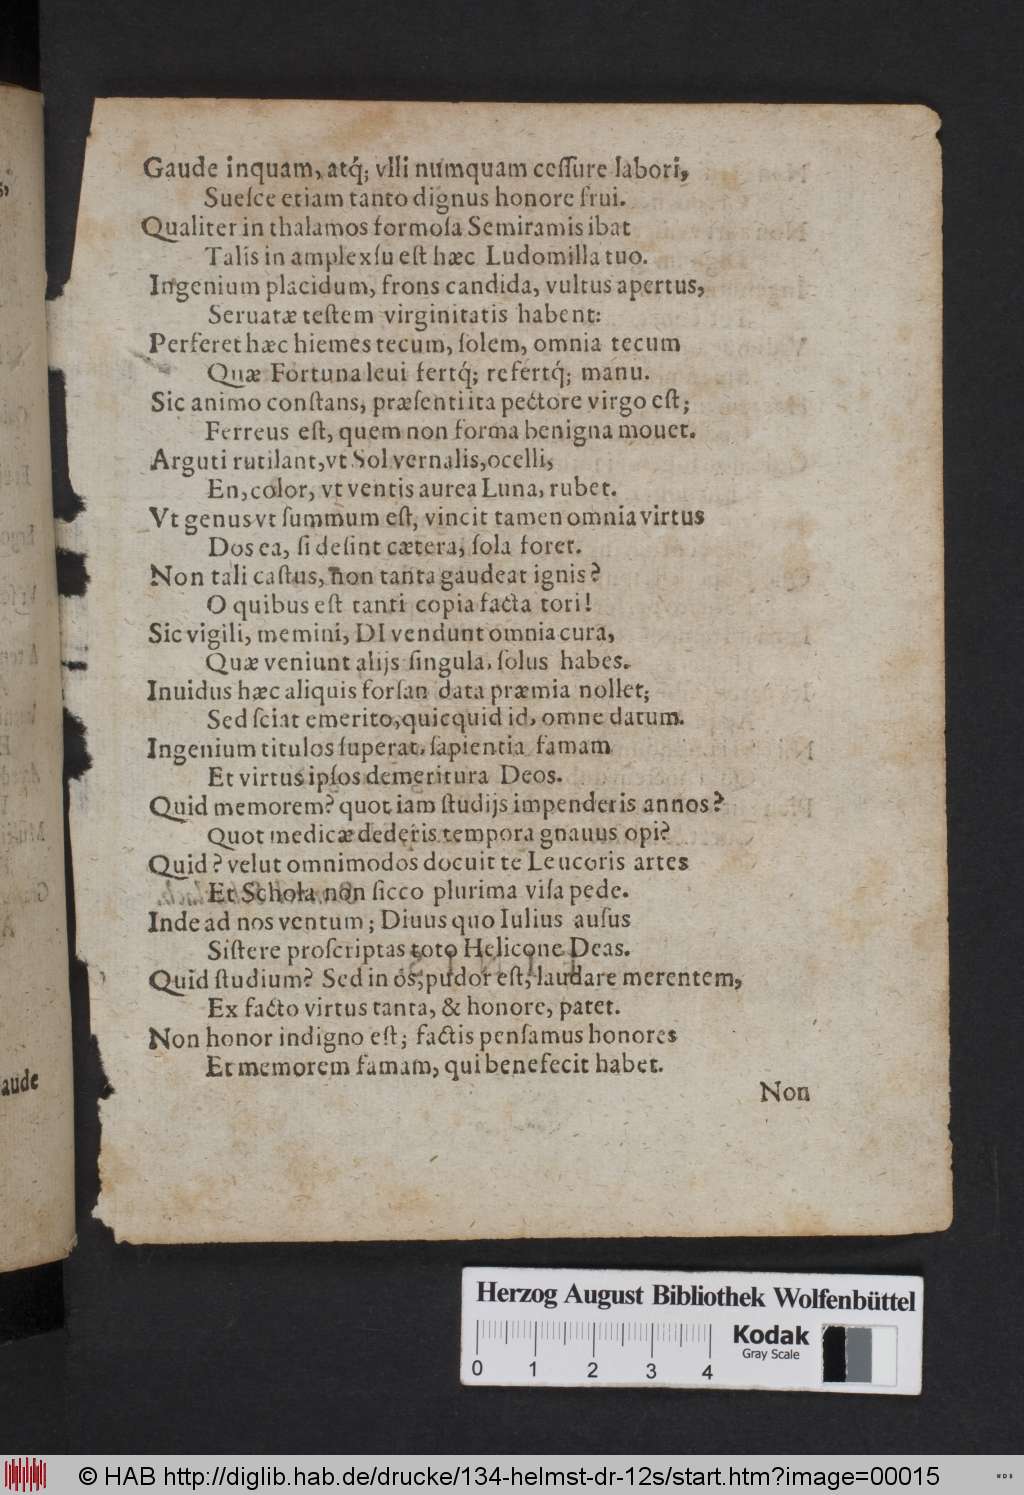 Gaude inquam, atq́; vlli numquam ceſſure labori,
Sueſce etiam tanto dignus honore frui.
Qualiter in thalamos formoſa Semiramis ibat
Talis in amplexſu eſt hæc Ludomilla tuo.
Ingenium placidum, frons candida, vultus apertus,
Seruatæ teſtem virginitatis habent:
Perferet hæc hiemes tecum, ſolem, omnia tecum
Quæ Fortuna leui fertq́; refertq́; manu.
Sic animo conſtans, præſenti ita pectore virgo eſt;
Ferreus eſt, quem non forma benigna mouet.
Arguti rutilant, vt Sol vernalis, ocelli,
En, color, vt ventis aurea Luna, rubet.
Vt genus vt ſummum eſt, vincit tamen omnia virtus
Dos ea, ſi deſint cætera, ſola foret.
Non tali caſtus, non tanta gaudeat ignis?
O quibus eſt tanti copia facta tori!
Sic vigili, memini, DI vendunt omnia cura,
Quæ veniunt alijs ſingula, ſolus habes.
Inuidus hæc aliquis forſan data præmia nollet;
Sed ſciat emerito, quicquid id, omne datum.
Ingenium titulos ſuperat, ſapientia famam
Et virtus ipſos demeritura Deos.
Quid memorem? quot iam ſtudijs impenderis annos?
Quot medicæ dederis tempora gnauus opi?
Quid? velut omnimodos docuit te Leucoris artes
Et Schola non ſicco plurima viſa pede.
Inde ad nos ventum; Diuus quo Iulius auſus
Siſtere proſcriptas toto Helicone Deas.
Quid ſtudium? Sed in os, pudor eſt, laudare merentem,
Ex facto virtus tanta, & honore, patet.
Non honor indigno eſt; factis penſamus honores
Et memorem famam, qui benefecit habet.
Non
aude
Herzog August Bibliothek Wolfenbüttel
Kodak
Gray Scale
0 1 2 3 4
© HAB http://diglib.hab.de/drucke/134-helmst-dr-12s/start.htm?image=00015